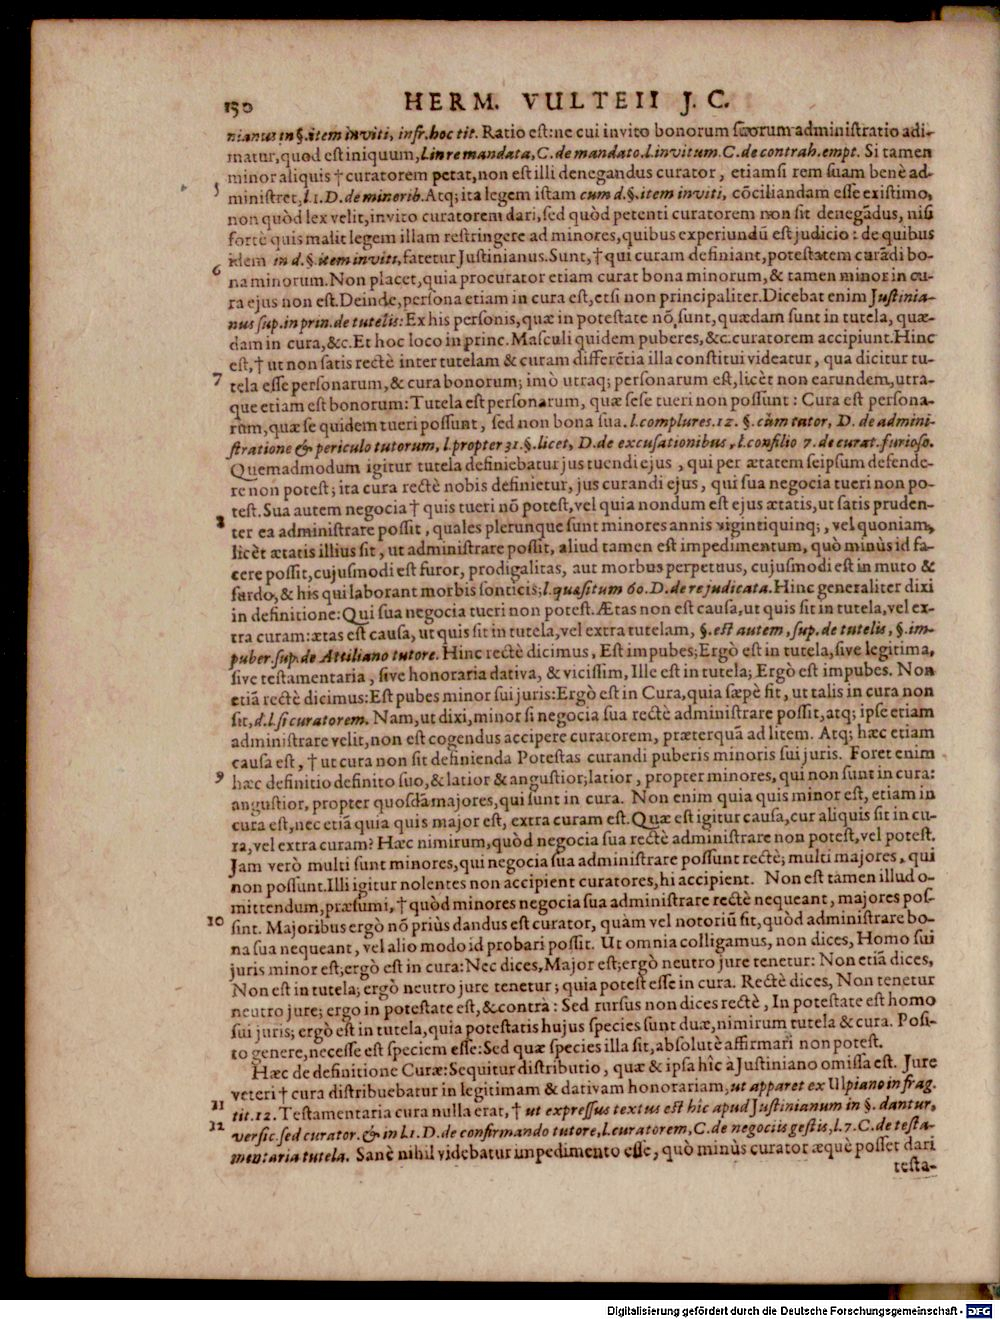 150 HERM. VULTEII J. C.
nianus in §. item inviti, infr. hoc tit. Ratio est: ne cui invito bonorum suorum administratio adi-
matur, quod est iniquum, l. in re mandata, C. de mandato. l. invitum. C. de contrah. empt. Si tamen
minor aliquis † curatorem petat, non est illi denegandus curator, etiamsi rem suam benè ad-
5 ministret, l. 1. D. de minorib. Atq; ita legem istam cum d. §. item inviti, cõciliandam esse existimo,
non quòd lex velit, invito curatorem dari, sed quòd petenti curatorem non sit denegãdus, nisi
fortè quis malit legem illam restringere ad minores, quibus experiundũ est judicio: de quibus
idem in d. §. item inviti, fatetur Justinianus. Sunt, † qui curam definiant, potestatem curãdi bo-
6 na minorum. Non placet, quia procurator etiam curat bona minorum, & tamen minor in cu-
ra ejus non est. Deinde, persona etiam in cura est, etsi non principaliter. Dicebat enim Justinia-
nus sup. in prin. de tutelis: Ex his personis, quæ in potestate nõ sunt, quædam sunt in tutela, quæ-
dam in cura, &c. Et hoc loco in princ. Masculi quidem puberes, &c. curatorem accipiunt. Hinc
est, † ut non satis rectè inter tutelam & curam differẽtia illa constitui videatur, qua dicitur tu-
7 tela esse personarum, & cura bonorum; imò utraq; personarum est, licèt non earundem, utra-
que etiam est bonorum: Tutela est personarum, quæ sese tueri non possunt: Cura est persona-
rum, quæ se quidem tueri possunt, sed non bona sua. l. complures. 12. §. cùm tutor, D. de admini-
stratione & periculo tutorum, l. propter 31. §. licet, D. de excusationibus, l. consilio 7. de curat. furioso.
Quemadmodum igitur tutela definiebatur jus tuendi ejus, qui per ætatem seipsum defende-
re non potest; ita cura rectè nobis definietur, jus curandi ejus, qui sua negocia tueri non po-
test. Sua autem negocia † quis tueri nõ potest, vel quia nondum est ejus ætatis, ut satis pruden-
8 ter ea administrare possit, quales plerunque sunt minores annis vigintiquinq;, vel quoniam,
licèt ætatis illius sit, ut administrare possit, aliud tamen est impedimentum, quò minùs id fa-
cere possit, cujusmodi est furor, prodigalitas, aut morbus perpetuus, cujusmodi est in muto &
surdo, & his qui laborant morbis sonticis; l. quæsitum 60. D. de re judicata. Hinc generaliter dixi
in definitione: Qui sua negocia tueri non potest. Ætas non est causa, ut quis sit in tutela, vel ex-
tra curam: ætas est causa, ut quis sit in tutela, vel extra tutelam, §. est autem, sup. de tutelis, §. im-
puber. sup. de Attiliano tutore. Hinc rectè dicimus, Est impubes; Ergò est in tutela, sive legitima,
sive testamentaria, sive honoraria dativa, & vicissim, Ille est in tutela; Ergò est impubes. Non
etiã rectè dicimus: Est pubes minor sui juris: Ergò est in Cura, quia sæpè fit, ut talis in cura non
sit, d. l. si curatorem. Nam, ut dixi, minor si negocia sua rectè administrare possit, atq; ipse etiam
administrare velit, non est cogendus accipere curatorem, præterquã ad litem. Atq; hæc etiam
causa est, † ut cura non sit definienda Potestas curandi puberis minoris sui juris. Foret enim
9 hæc definitio definito suo, & latior & angustior; latior, propter minores, qui non sunt in cura:
angustior, propter quosdã majores, qui sunt in cura. Non enim quia quis minor est, etiam in
cura est, nec etiã quia quis major est, extra curam est. Quæ est igitur causa, cur aliquis sit in cu-
ra, vel extra curam? Hæc nimirum, quòd negocia sua rectè administrare non potest, vel potest.
Jam verò multi sunt minores, qui negocia sua administrare possunt rectè; multi majores, qui
non possunt. Illi igitur nolentes non accipient curatores, hi accipient. Non est tamen illud o-
mittendum, præsumi, † quòd minores negocia sua administrare rectè nequeant, majores pos-
10 sint. Majoribus ergò nõ priùs dandus est curator, quàm vel notoriũ sit, quòd administrare bo-
na sua nequeant, vel alio modo id probari possit. Ut omnia colligamus, non dices, Homo sui
juris minor est; ergò est in cura: Nec dices, Major est; ergò neutro jure tenetur: Non etiã dices,
Non est in tutela; ergò neutro jure tenetur; quia potest esse in cura. Rectè dices, Non tenetur
neutro jure; ergo in potestate est, & contrà: Sed rursus non dices rectè, In potestate est homo
sui juris; ergò est in tutela, quia potestatis hujus species sunt duæ, nimirum tutela & cura. Posi-
to genere, necesse est speciem esse: Sed quæ species illa sit, absolutè affirmari non potest.
Hæc de definitione Curæ: Sequitur distributio, quæ & ipsa hîc à Justiniano omissa est. Jure
veteri † cura distribuebatur in legitimam & dativam honorariam, ut apparet ex Ulpiano in frag.
11 tit. 12. Testamentaria cura nulla erat, † ut expressus textus est hîc apud Justinianum in §. dantur,
12 versic. sed curator. & in l. 1. D. de confirmando tutore, l. curatorem, C. de negociis gestis, l. 7. C. de testa-
mentaria tutela. Sanè nihil videbatur impedimento esse, quò minùs curator æquè posset dari
testa-
Digitalisierung gefördert durch die Deutsche Forschungsgemeinschaft - DFG